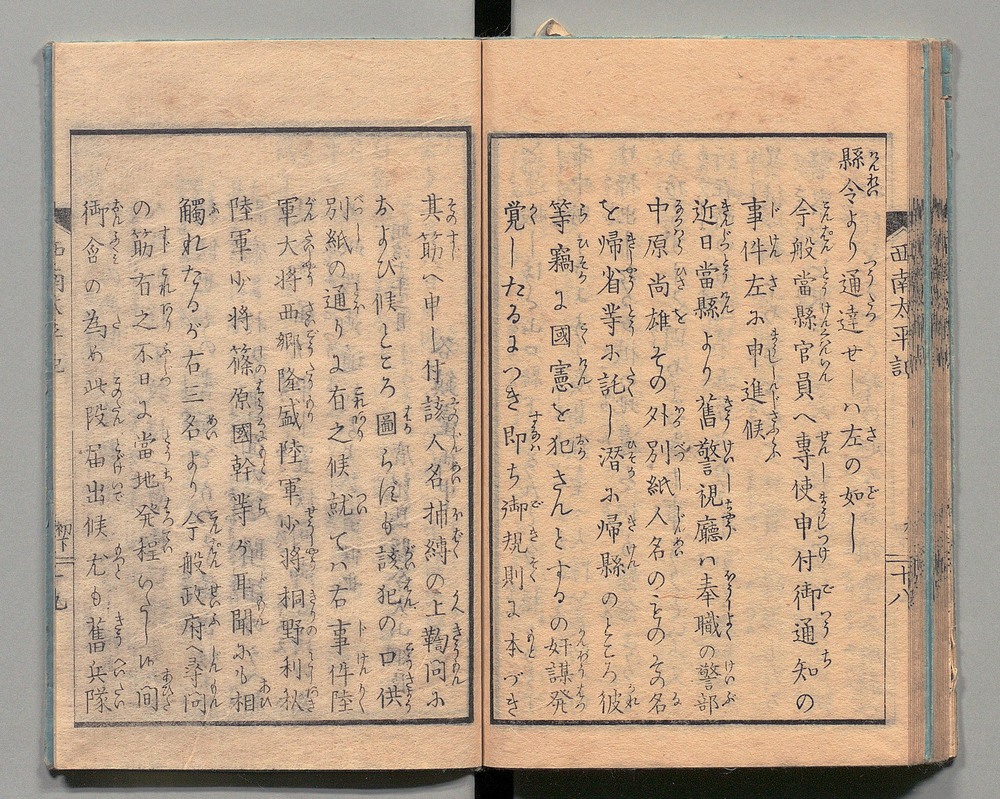 縣令より通達せしハ左の如し
今般當縣官員へ專使申付御通知の
事件左ニ申進候
近日當縣より舊警視廳ハ奉職の警部
中原尚雄その外別紙人名のものその名
を帰省等ニ託し潜ニ帰縣のところ彼
等竊ニ國憲を犯さんとするの奸謀発
覚したるにつき即ち御規則に本づき
其筋へ申し付該人名捕縛の上鞫問ニ
および候ところ圖らずも該犯の口供
別紙の通りに有之候就てハ右事件陸
軍大将西郷隆盛陸軍少将桐野利秋
陸軍少将篠原國幹等が耳聞ニも相
觸れたるが右三名より今般政府へ尋問
の筋有之不日に當地発程いたし候間
御含の為め此段届出候尤も舊兵隊
西南太平記
十八
西南太平記
初下
十九